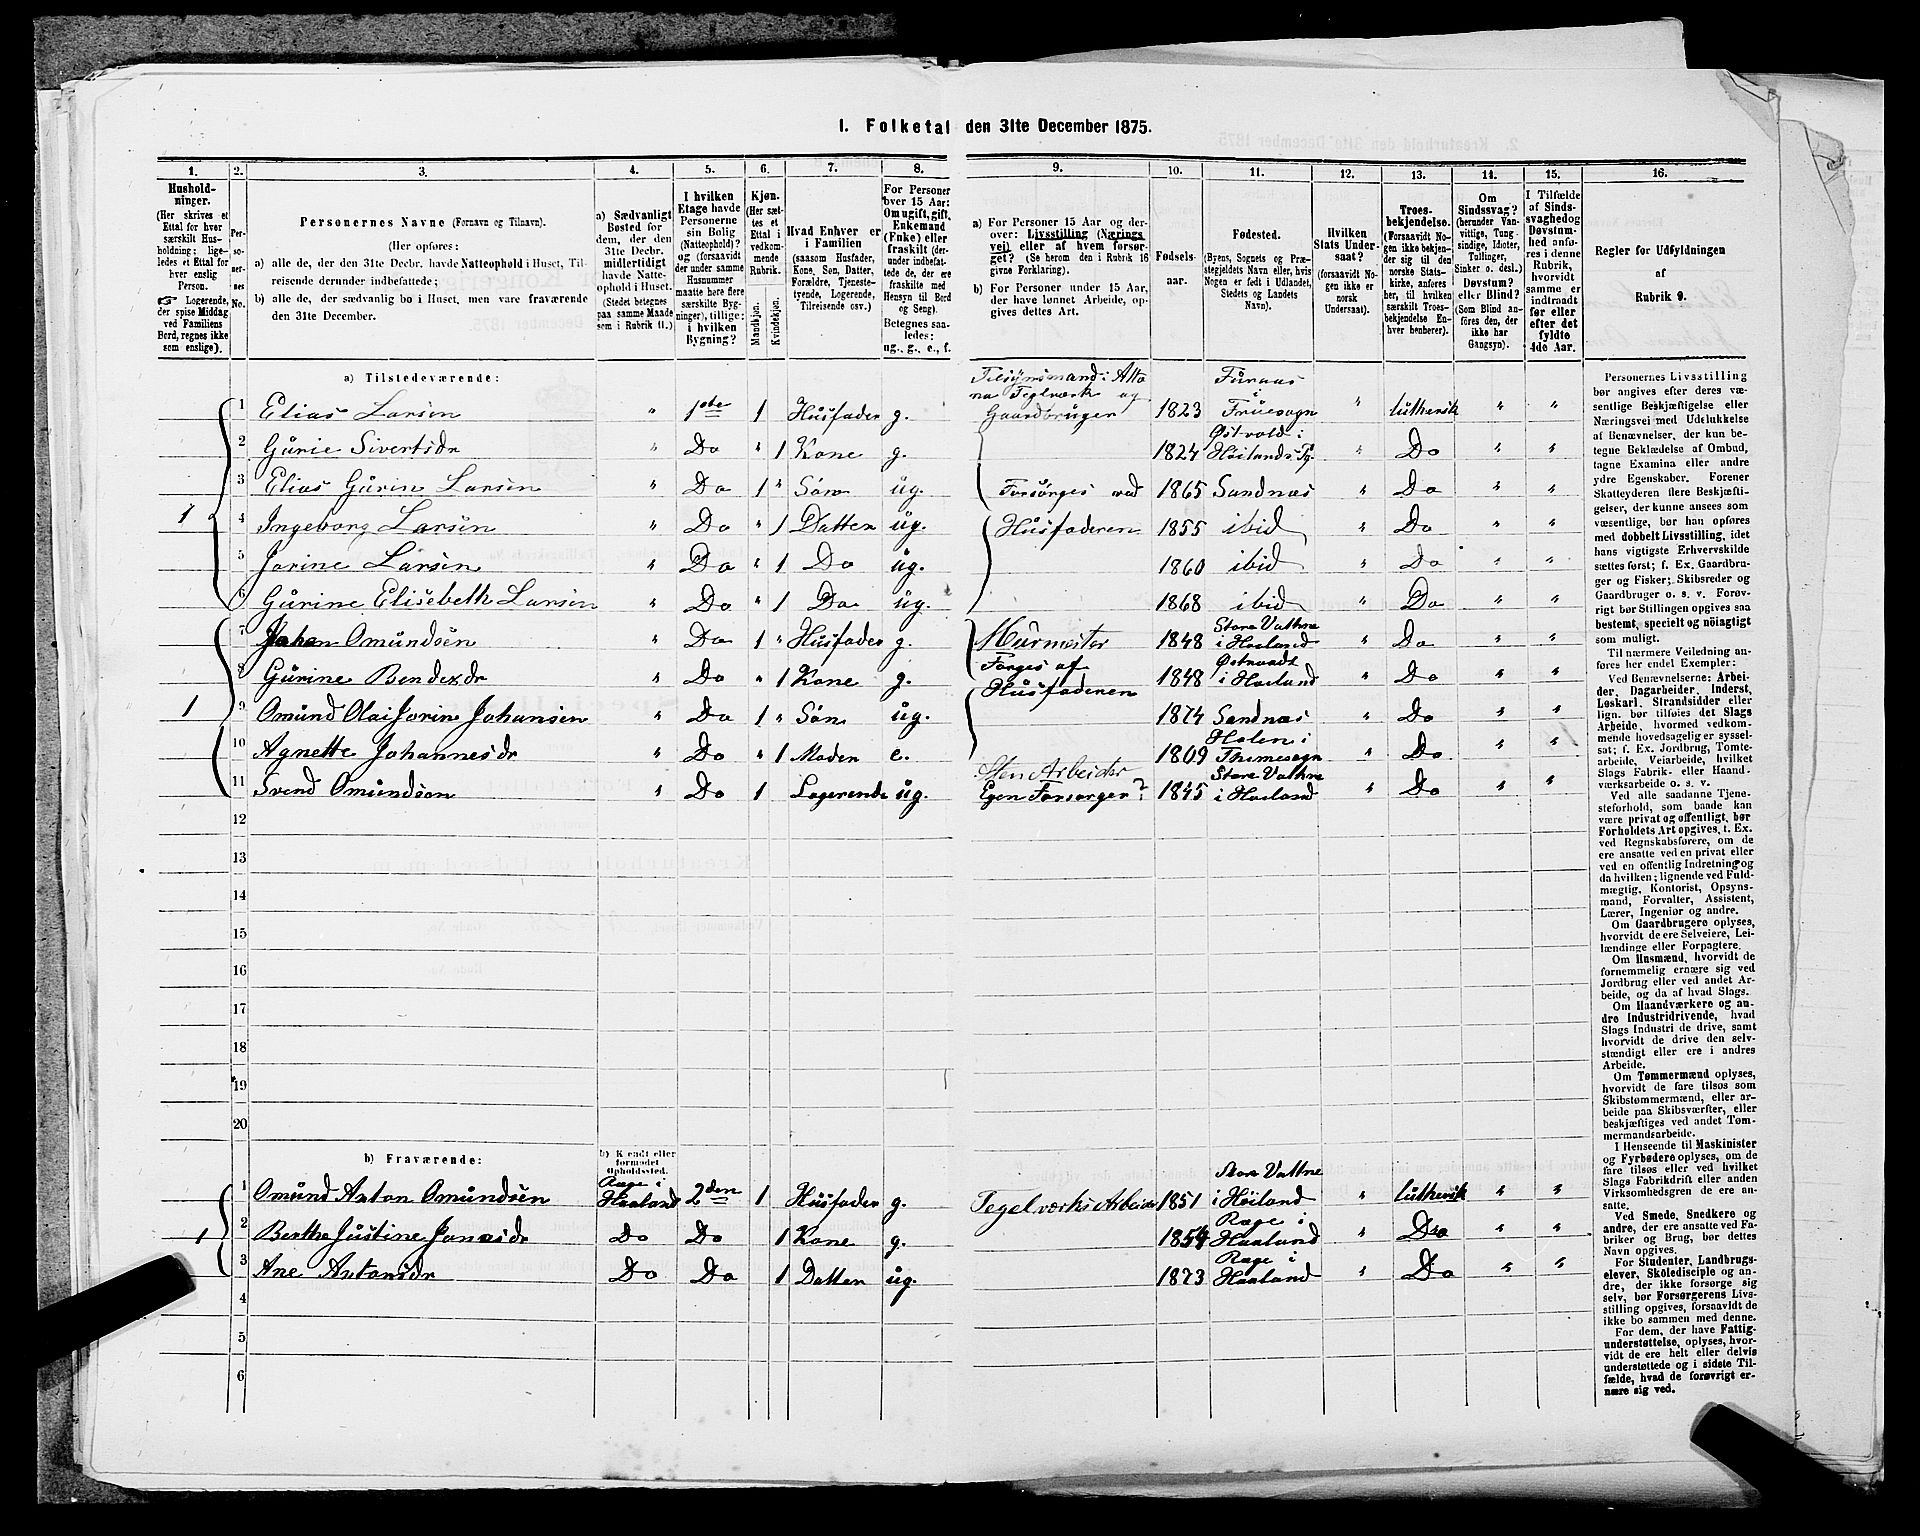 1. Folketal den 31te December 1875.
1. 2. 3. 4. 5. 6. 7. 8. 9. 10. 11. 12. 13. 14. 15. 16.
Husholdninger.
(Her skrives et
Ettal for hver
særskilt Husholdning;
ligeledes et Ettal for
hver enslig
Person.
Logerende,
der spise Middag
ved Familiens
Bord, regnes ikke
som enslige).
Personernes
No.
Personernes Navne (Fornavn og Tilnavn).
(Her opføres:
a) alle de, der den 31te Decbr. havde Natteophold i Huset, Tilreisende
derunder indbefattede;
b) alle de, der sædvanlig bo i Huset, men vare fraværende
den 31te December.
a) Sædvanligt
Bosted for
dem, der den
31te Decbr.
midlertidigt
havde Natteophold
i Huset.
(Stedet betegnes
paa samme Maade
som i Rubrik 11.)
I hvilken
Etage havde
Personerne
sin Bolig
(Natteophold)?
og (forsaavidt
der under samme
Husnummer
maatte høre flere
særskilte Bygninger),
tillige:
i hvilken
Bygning?
Kjøn.
(Her sættes
et
Ettal i
vedkommende
Rubrik.)
Mandkjøn. Kvindekjøn.
Hvad Enhver er
i Familien
(saasom Husfader,
Kone, Søn, Datter,
Forældre, Tjenestetyende,
Logerende,
Tilreisende osv.)
For Personer
over 15 Aar:
Om ugift, gift,
Enkemand
(Enke) eller
fraskilt (derunder
indbefattede
de, der ere
fraskilte med
Hensyn til Bord
og Seng).
Betegnes saaledes:
ug., g., e., f.
a) For Personer 15 Aar og derover:
Livsstilling (Næringsvei)
eller af hvem forsørget?
(Se herom den i Rubrik 16
givne Forklaring).
b) For Personer under 15 Aar,
der have lønnet Arbeide, opgives
dettes Art.
Fødselsaar.
Fødested.
(Byens, Sognets og Præstegjeldets
Navn eller, hvis
Nogen er født i Udlandet,
Stedets og Landets
Navn).
Hvilken
Stats Undersaat?
(forsaavidt Nogen
ikke er
norsk
Undersaat).
Troesbekjendelse.
(Forsaavidt Nogen
ikke bekjender
sig til den
norske Statskirke,
anføres
her, til hvilken
særskilt Troesbekjendelse
Enhver
henhører).
Om
Sindssvag?
(herunder Vanvittige,
Tungsindige,
Idioter,
Tullinger,
Sinker o. desl.)?
Døvstum?
eller Blind?
(Som Blind anføres
den, der
ikke har
Gangsyn).
I Tilfælde
af Sindssvaghed og
Døvstumhed
anføres
i denne
Rubrik,
hvorvidt
samme er
indtraadt
før eller
efter det
fyldte
4de Aar.
Regler for Udfyldningen
af
Rubrik 9.
a) Tilstedeværende:
1 Elias Larsen " 1ste 1 Husfader g. Tilsynsmand i Altona Teglværk og Gaardbruger 1823 Furaas i Fruesogn " luthersk " "
2 Gürie Sivertsdr " Do " 1 Kone g. 1824 Østvold i Høilands Pg. " Do " "
3 Elias Gürin Larsen " Do 1 " Søn ug. Forsørges ved 1865 Sandnæs " Do " "
1 4 Ingeborg Larsen " Do " 1 Datter ug. Husfaderen 1855 ibid " Do " "
5 Jorine Larsen " Do " 1 Do ug. 1860 ibid " Do " "
6 Gürine Elisebeth Larsen " Do " 1 Do ug. 1868 ibid " Do " "
7 Johan Omundsen " Do 1 " Husfader g. Murmester 1848 Store Vathne i Høiland " Do " "
8 Gürine Bendexdr " Do " 1 Kone g. Forges af Husfaderen 1848 Østraadt i Høiland " Do " "
1 9 Omünd Olai Jorin Johansen " Do 1 " Søn ug. 1874 Sandnæs " Do " "
10 Agnette Johannesdr " Do " 1 Moder e. 1809 Holen i Thimesogn " Do " "
11 Svend Omündsen " Do 1 Logerende ug. Sten Arbeider Egen Forsørger? 1845 Store Vathne i Høiland " Do " "
12
13
14
15
16
17
18
19
20
b) Fraværende: b) Kjendt eller
formodet
Opholdssted.
1 Omünd Anton Omündsen Rage i Haaland 2den 1 Husfader g. Tegelværks Arbeider 1851 Store Vathne i Høiland " luthersk " "
1 2 Berthe Jüstine Jonasdr Do Do 1 Kone g. 1854 Rage i Haaland " Do " "
3 Ane Antonsdr Do Do 1 Datter ug. 1873 Rage i Haaland " Do " "
4
5
6
Personernes Livsstilling
bør angives efter deres væsentlige
Beskjæftigelse eller
Næringsvei med Udelukkelse
af Benævnelser, der kun betegne
Beklædelse af Ombud,
tagne Examina eller andre
ydre Egenskaber. Forener
Skatteyderen flere Beskjæftigelser,
der kunne ansees som
væsentlige, bør han opføres
med dobbelt Livsstilling, idet
hans vigtigste Erhvervskilde
sættes først; f. Ex. Gaardbruger
og Fisker; Skibsreder og
Gaardbruger o. s. v. Forøvrigt
bør Stillingen opgives saa
bestemt, specielt og nöiagtigt
som muligt.
Til nærmere Veiledning anføres
her endel Exempler:
Ved Benævnelserne: Arbeider,
Dagarbeider, Inderst,
Løskarl, Strandsidder eller
lign. bør tilføies det Slags
Arbeide, hvormed vedkommende
hovedsagelig er sysselsat;
f. Ex. Jordbrug, Tomtearbeide,
Veiarbeide, hvilket
Slags Fabrik- eller Haandværksarbeide
o. s. v.
Ved alle saadanne Tjenesteforhold,
som baade kan
være privat og offentligt, bør
Forholdets Art opgives, t. Ex.
ved Regnskabsførere, om de
ere ansatte ved en privat eller
ved en offentlig Indretning og
da hvilken; lignende ved Fuldmægtig,
Kontorist, Opsynsmand,
Forvalter, Assistent,
Lærer, Ingeniør og andre.
Om Gaardbrugere oplyses,
hvorvidt de ere Selveiere, Leilændinge
eller Forpagtere.
Om Husmænd, hvorvidt de
fornemmelig ernære sig ved
Jordbrug eller ved andet Arbeide,
og da af hvad Slags.
Om Haandværkere og andre
Industridrivende, hvad
Slags Industri de drive, samt
hvorvidt de drive den selvstændigt
eller ere i andres
Arbeide.
Om Tømmermænd oplyses,
hvorvidt de fare tilsøs som
Skibstømmermænd, eller arbeide
paa Skibsværfter, eller
beskjæftiges ved andet Tømmermandsarbeide.
I Henseende til Maskinister
og Fyrbødere oplyses, om de
fare tilsøs eller ved hvilket
Slags Fabrikdrift eller anden
Virksomhedsgren de ere ansatte.
Ved Smede, Snedkere og
andre, der ere ansatte ved Fabriker
og Brug, bør dettes
Navn opgives.
For Studenter, Landbrugselever,
Skoledisciple og andre,
der ikke forsørge sig
selv, bør Forsørgerens Livsstilling
opgives, forsaavidt de
ikke bo sammen med denne.
For dem, der have Fattigunderstøttelse,
oplyses, hvorvidt
de ere helt eller delvis
understøttede og i sidste Tilfælde,
hvad de forøvrigt ernære
sig ved.